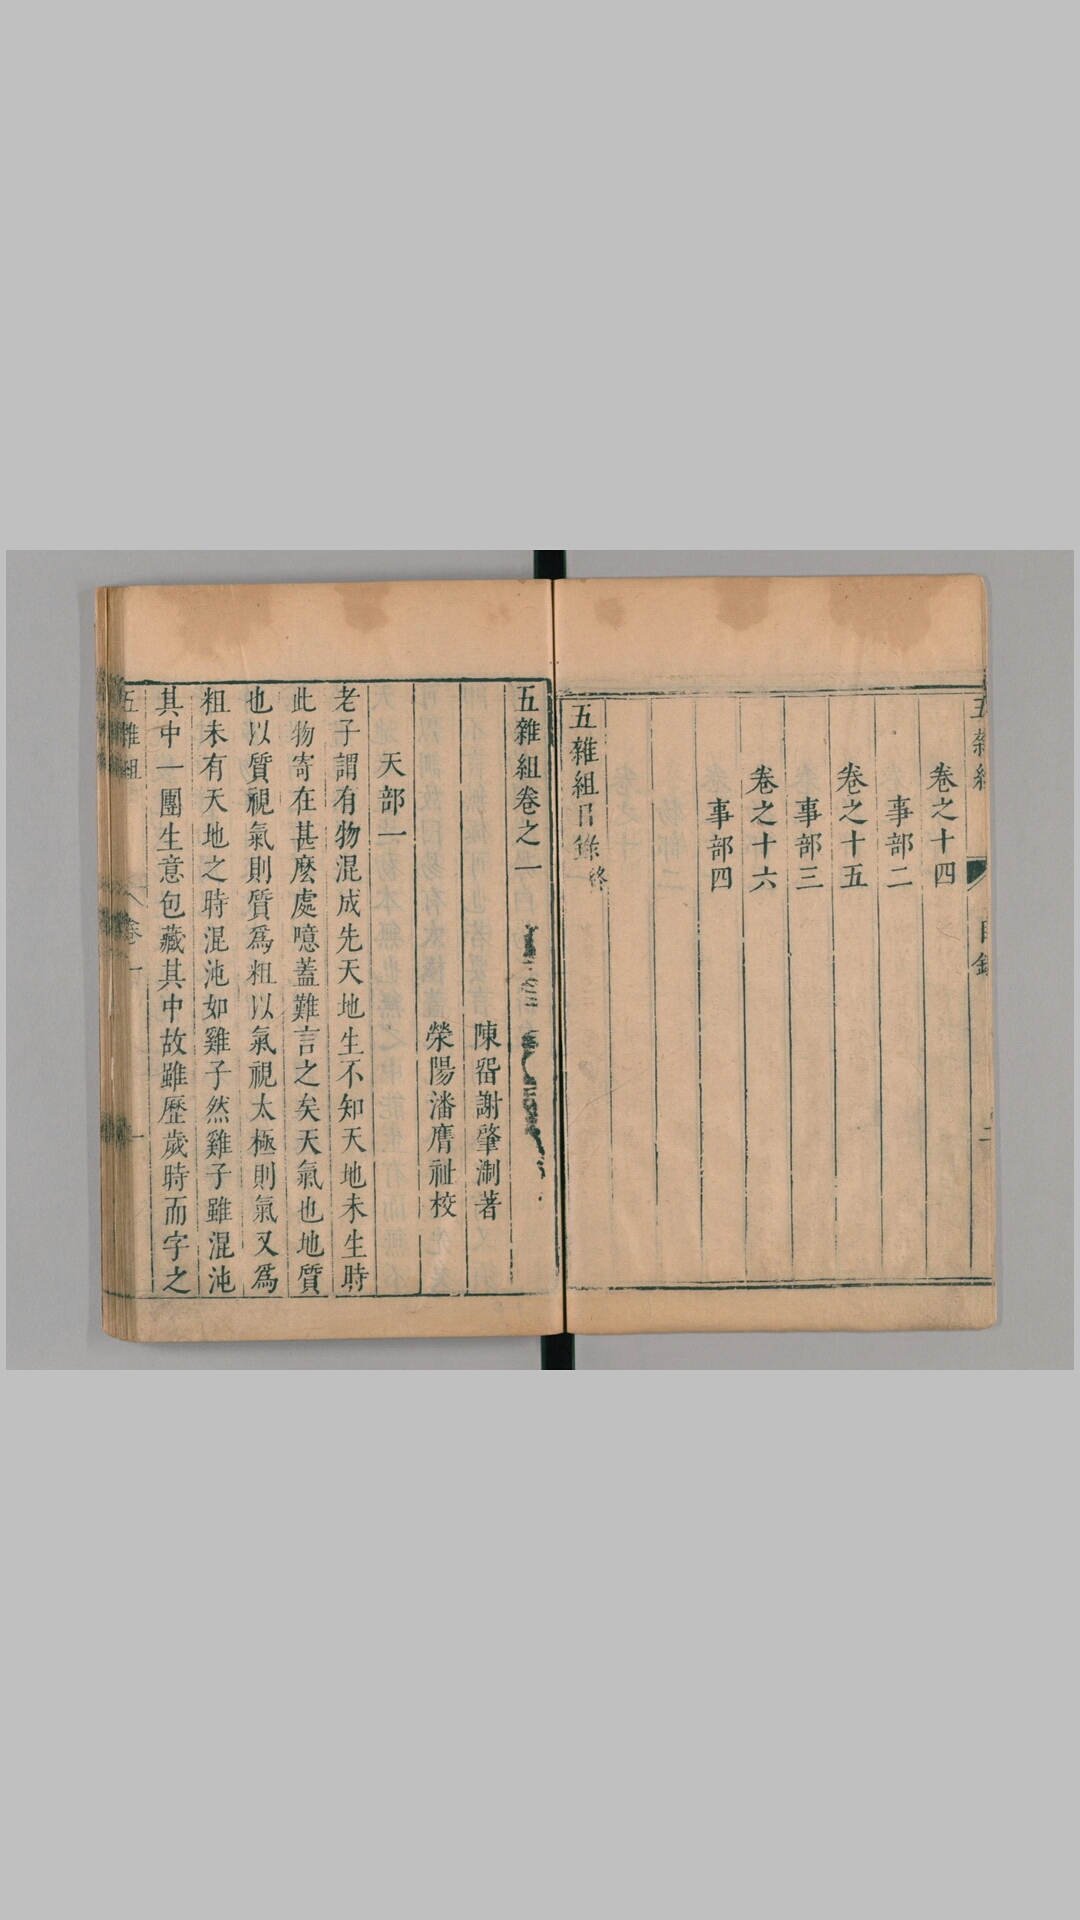 五雜組
目錄
二
卷之十四
事部二
卷之十五
事部三
卷之十六
事部四
五雜組目錄終
五雜組卷之一
陳留謝肇淛著
榮陽潘膺祉校
天部一
老子謂有物混成先天地生不知天地未生時
此物寄在甚麽處噫蓋難言之矣天氣也地質
也以質視氣則質爲粗以氣視太極則氣又爲
粗未有天地之時混沌如雞子然雞子雖混沌
其中一團生意包藏其中故雖歷歲時而字之
五雜組
卷一
一